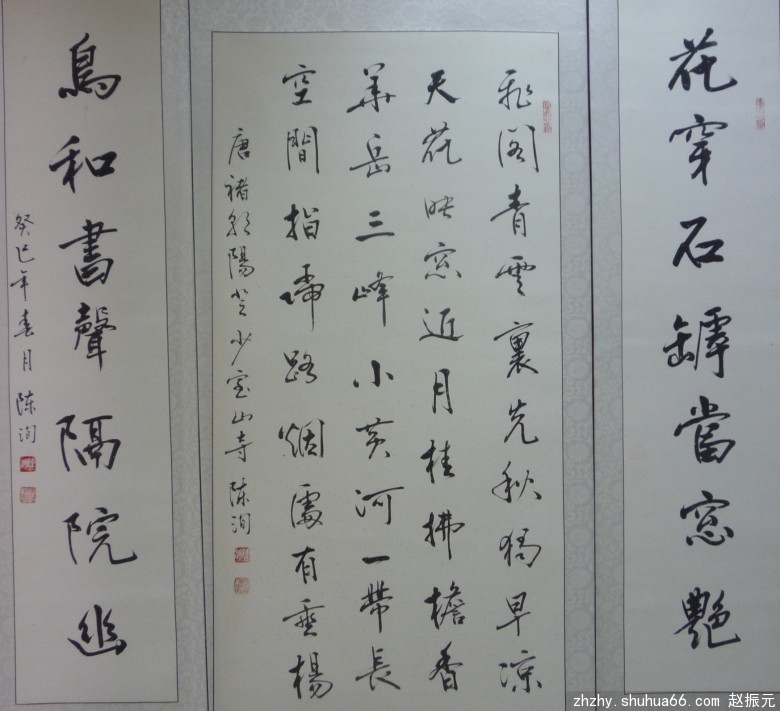 花穿石罅當窓艷
飛閣青雲裏先秋獨早凉
天花映窓近月桂拂檐香
華岳三峰小黄河一帶長
空間指歸路烟處有垂楊
唐褚朝陽登少室山寺 陈洵
鳥和書聲隔院幽
癸巳年春月 陈洵
zhzhy.shuhua66.com 赵振元